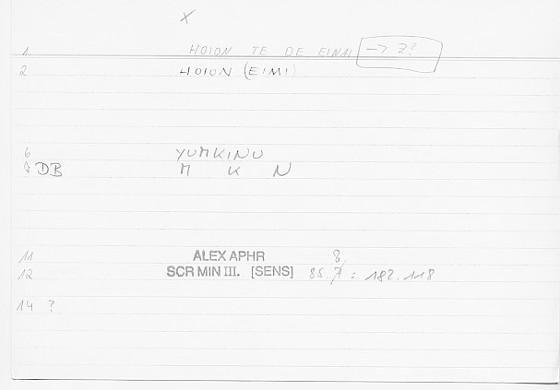 X
1 HOION TE DE EINAI → Z?
2 HOION (EIMI)
6 YUMKINU
7 DB M K N
11 ALEX APHR 8,
12 SCR MIN III. [SENS] 85.7 : 182.118
14 ?